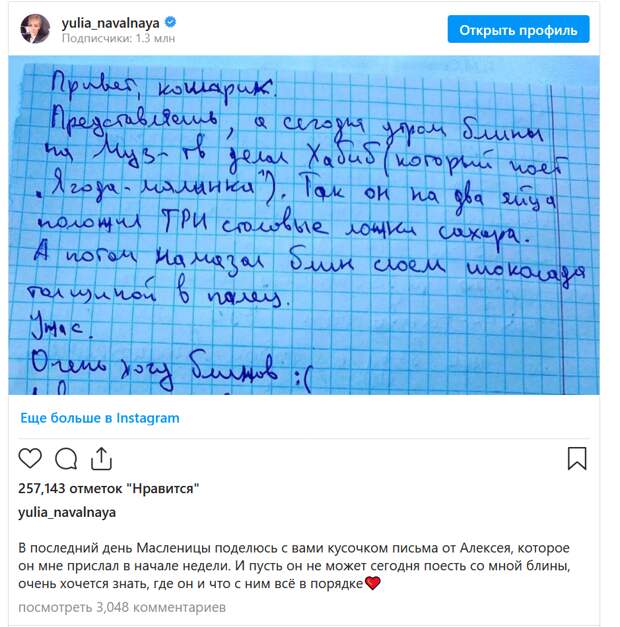 yulia_navalnaya
Подписчики: 1.3 млн
Открыть профиль
Привет, кошарик.
Представляешь, а сегодня утром блины
на Муз-тв делал Хабиб (который поёт
„Ягода-малинка"). Так он на два яйца
положил ТРИ столовые ложки сахара.
А потом намазал блин слоем шоколада
толщиной в палец.
Ужас.
Очень хочу блинов :(
Еще больше в Instagram
257,143 отметок "Нравится"
yulia_navalnaya
В последний день Масленицы поделюсь с вами кусочком письма от Алексея, которое
он мне прислал в начале недели. И пусть он не может сегодня поесть со мной блины,
очень хочется знать, где он и что с ним всё в порядке❤️
посмотреть 3,048 комментариев